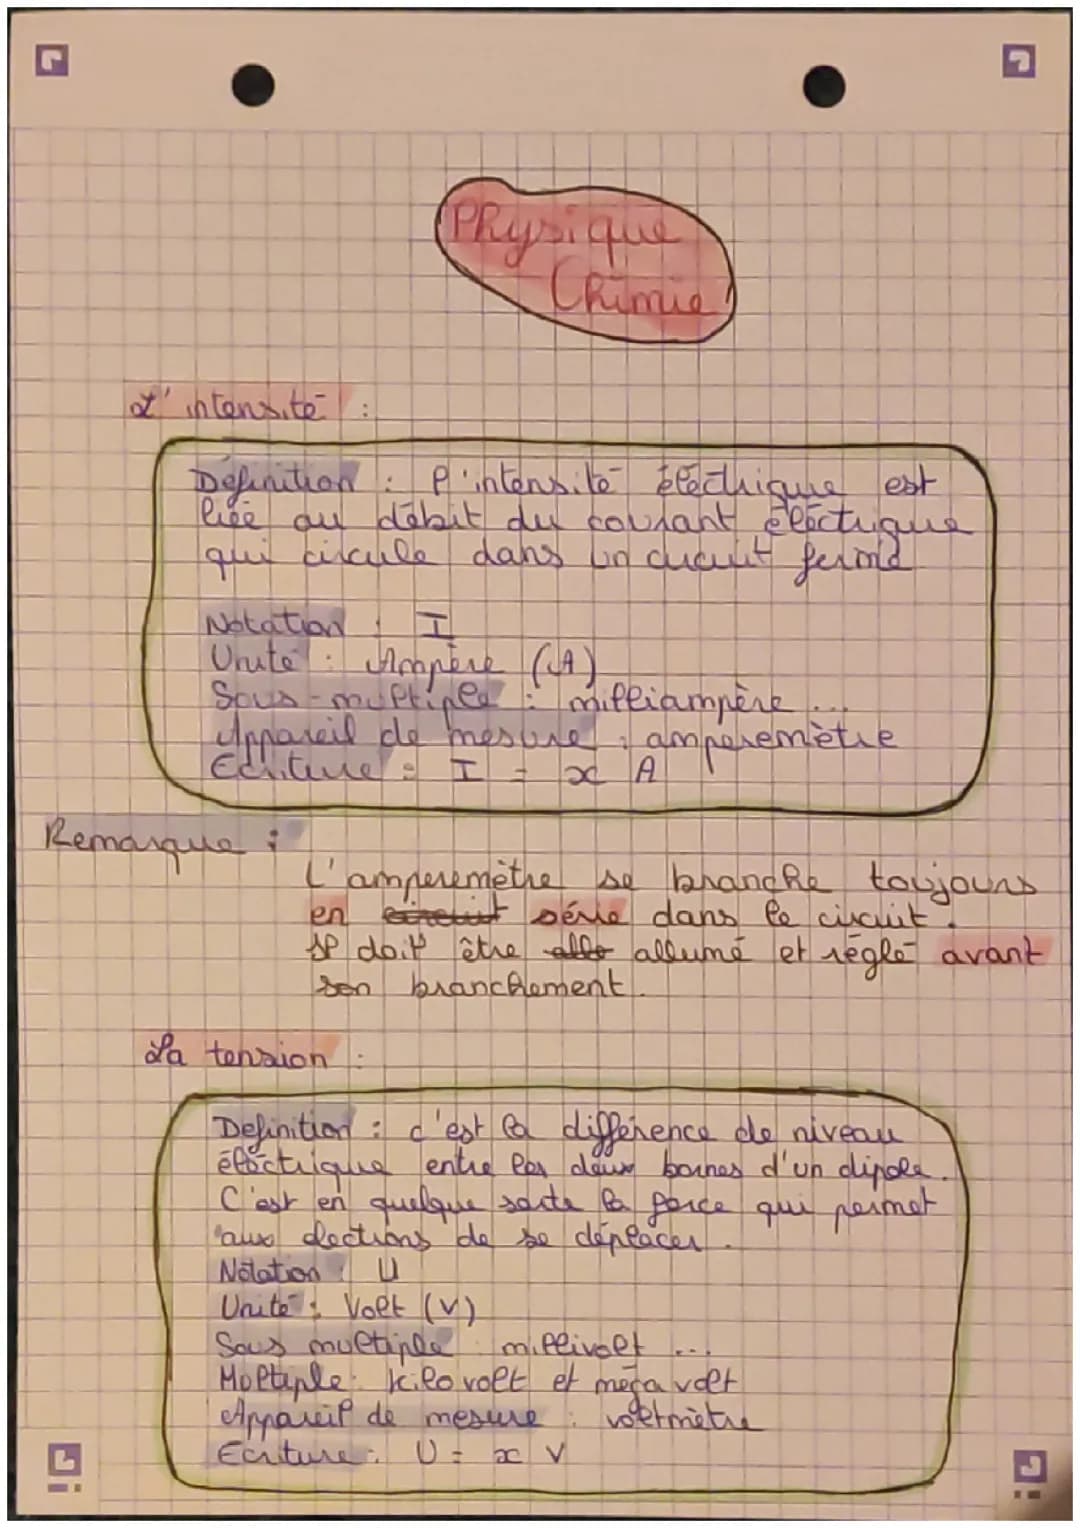 Physique
Chimie
L'intensité :
Définition : l'intensité électrique est
liée au débit du courant électrique
qui circule dans un circuit fermé
Notation : I
Unité : Ampère (A)
Sous-multiple : milliampère ...
Appareil de mesure : amperemètre
Ecriture : I = x A
Remarque :
L'amperemètre se branche toujours
en circuit série dans le circuit.
Il doit être allo allumé et réglé avant
son branchement.
La tension :
Definition : c'est la différence de niveau
électrique entre les deux bornes d'un dipole.
C'est en quelque sorte la force qui permet
aux électrons de se déplacer.
Notation : U
Unité : Volt (V)
Sous multiple : millivolt ...
Moltiple : kilovolt et mégavolt
Appareil de mesure : voltmètre
Ecriture : U = x V